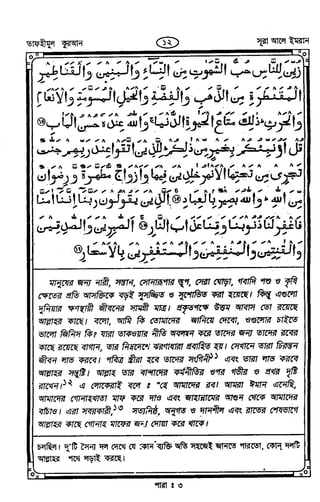 তাফহীমুল কুরআন
১২
সূরা আলে ইমরান
زُيِّنَ لِلنَّاسِ حُبُّ الشَّهَوٰتِ مِنَ النِّسَاءِ وَالْبَنِيْنَ وَالْقَنَاطِيْرِ
الْمُقَنْطَرَةِ مِنَ الذَّهَبِ وَالْفِضَّةِ وَالْخَيْلِ الْمُسَوَّمَةِ وَالْاَنْعَامِ
وَالْحَرْثِ ؕ ذٰلِكَ مَتَاعُ الْحَيٰوةِ الدُّنْيَا ۚ وَاللهُ عِنْدَهٗ حُسْنُ الْمَاٰبِ ⑭
قُلْ اَؤُنَبِّئُكُمْ بِخَيْرٍ مِّنْ ذٰلِكُمْ ؕ لِلَّذِيْنَ اتَّقَوْا عِنْدَ رَبِّهِمْ جَنّٰتٌ
تَجْرِىْ مِنْ تَحْتِهَا الْاَنْهٰرُ خٰلِدِيْنَ فِيْهَا وَاَزْوَاجٌ مُّطَهَّرَةٌ وَّرِضْوَانٌ
مِّنَ اللهِ ؕ وَاللهُ بَصِيْرٌۢ بِالْعِبَادِ ⑮ اَلَّذِيْنَ يَقُوْلُوْنَ رَبَّنَآ اِنَّنَآ اٰمَنَّا
فَاغْفِرْ لَنَا ذُنُوْبَنَا وَقِنَا عَذَابَ النَّارِ ⑯ اَلصّٰبِرِيْنَ وَالصّٰدِقِيْنَ
وَالْقٰنِتِيْنَ وَالْمُنْفِقِيْنَ وَالْمُسْتَغْفِرِيْنَ بِالْاَسْحَارِ ⑰
মানুষের জন্য নারী, সন্তান, সোনারূপার স্তূপ, সেরা ঘোড়া, গবাদি পশু ও কৃষি
ক্ষেতের প্রতি আসক্তিকে বড়ই সুসজ্জিত ও সুশোভিত করা হয়েছে। কিন্তু এগুলো
দুনিয়ার ক্ষণস্থায়ী জীবনের সামগ্রী মাত্র। প্রকৃতপক্ষে উত্তম আবাস তো রয়েছে
আল্লাহর কাছে। বলো, আমি কি তোমাদের জানিয়ে দেবো, ওগুলোর চাইতে
ভালো জিনিস কি? যারা তাকওয়ার নীতি অবলম্বন করে তাদের জন্য তাদের রবের
কাছে রয়েছে বাগান, তার নিম্নদেশে ঝরণাধারা প্রবাহিত হয়। সেখানে তারা চিরন্তন
জীবন লাভ করবে। পবিত্র স্ত্রীরা হবে তাদের সংগিনী১১ এবং তারা লাভ করবে
আল্লাহর সন্তুষ্টি। আল্লাহ তার বান্দাদের কর্মনীতির ওপর গভীর ও প্রখর দৃষ্টি
রাখেন।১২ এ লোকেরাই বলে ঃ "হে আমাদের রব! আমরা ঈমান এনেছি,
আমাদের গোনাহখাতা মাফ করে দাও এবং জাহান্নামের আগুন থেকে আমাদের
বাঁচাও। এরা সবরকারী,১৩ সত্যনিষ্ঠ, অনুগত ও দানশীল এবং রাতের শেষভাগে
আল্লাহর কাছে গোনাহ মাফের জন্য দোয়া করে থাকে।
চলছিল। দু'টি সৈন্য দল দেখে যে কোন ব্যক্তি অতি সহজেই জানতে পারতো, কোন্ দলটি
আল্লাহর পথে লড়াই করছে।
পারা ঃ ৩